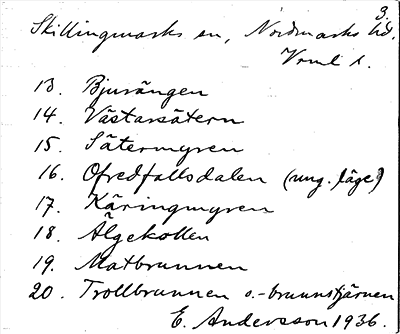 3.
Skillingmarks sn, Nordmarks hd.
Vrml l.
13. Bjurängen
14. Västarsätern
15. Sätermyren
16. Ofredfallsdalen (ung. läge)
17. Käringmyren
18. Älgekollen
19. Matbrunnen
20. Trollbrunnen o. -brunnstjärnen
E. Andersson 1936.